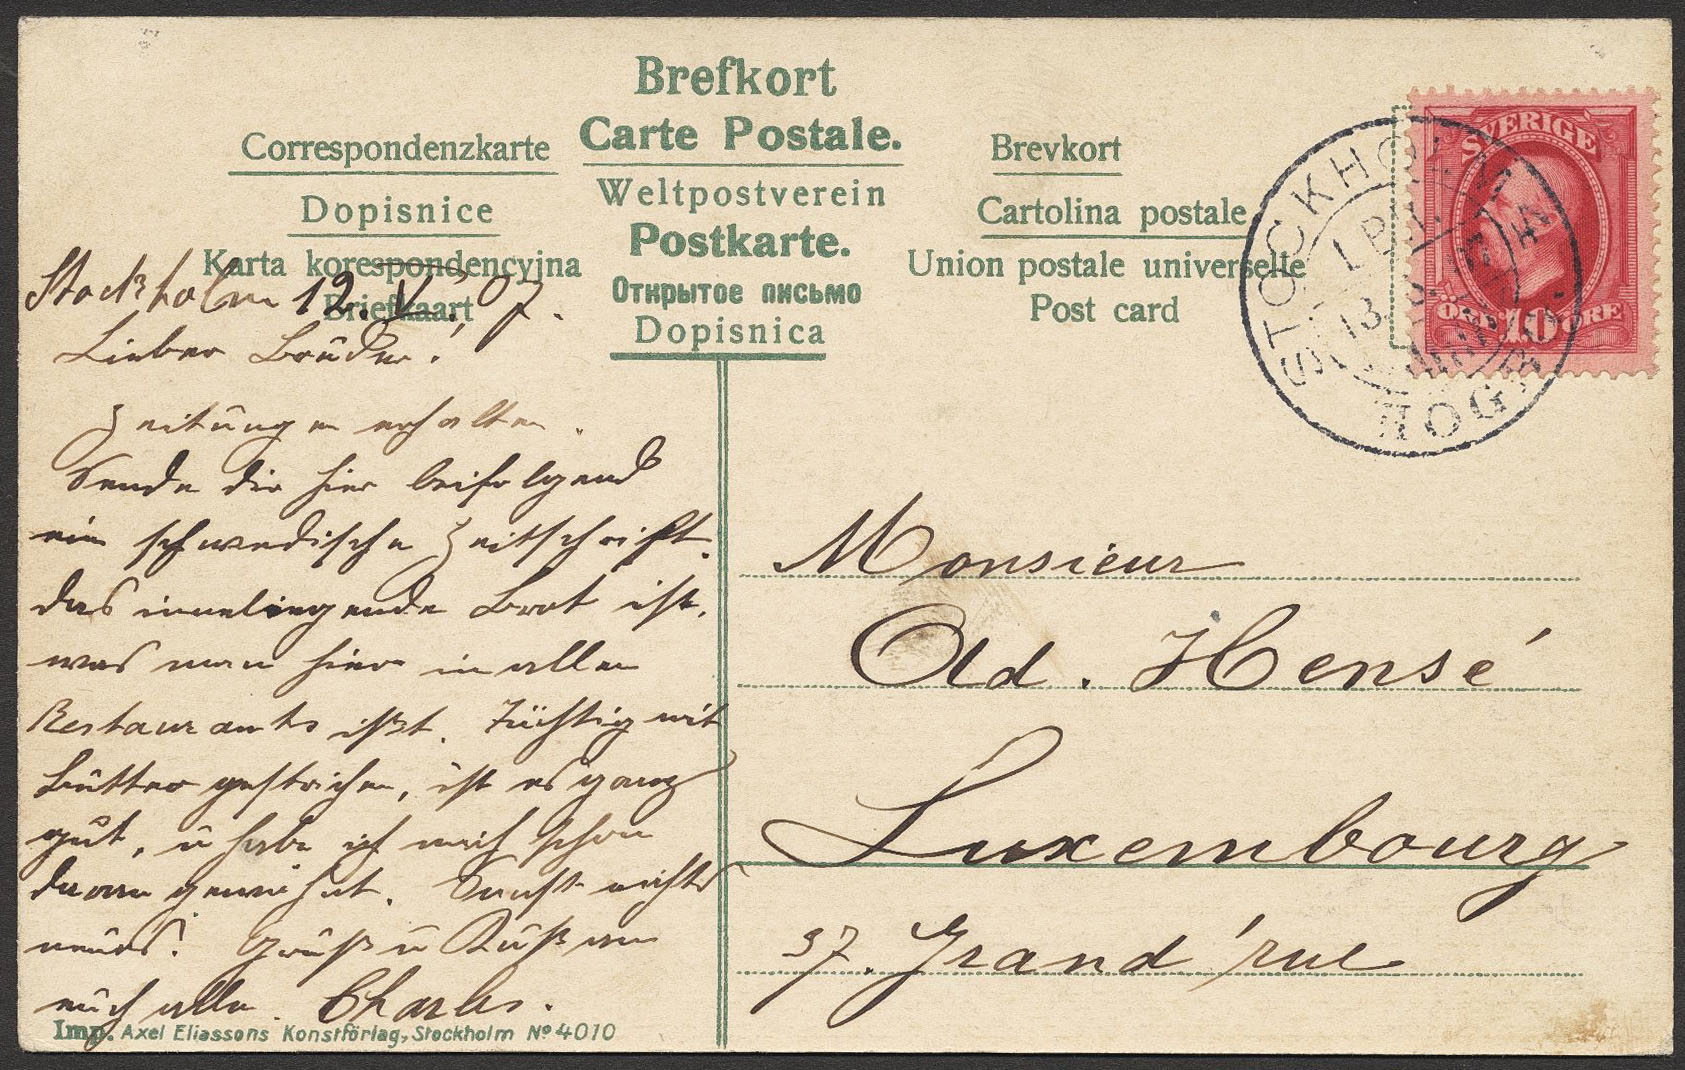 Brefkort
Carte Postale.
Weltpostverein
Postkarte.
Открытое письмо
Dopisnica
Correspondenzkarte
Dopisnice
Karta korespondencyjna
Briefkaart
Brevkort
Cartolina postale
Union postale universelle
Post card
SVERIGE
ÖRE 10 ÖRE
STOCKHOLM
13
Stockholm 12. V. 07.
Lieber Bruder!
Zeitungen erhalten.
Sende dir hier beifolgend
ein schwedische Zeitschrift.
das inneliegende Brot ist,
was man hier in allen
Restaurants ißt. Tüchtig mit
Butter gestrichen, ist es ganz
gut, u habe ich mich schon
daran gewöhnt. Sonst nichts
neues. Gruß u Kuß an
euch alle. Charles.
Monsieur
Ad. Hensé
Luxembourg
37. Grand'rue
Imp. Axel Eliassons Konstförlag, Stockholm No 4010